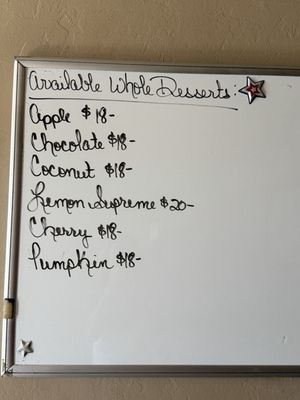 Available Whole Desserts:
Apple $18-
Chocolate $18-
Coconut $18-
Lemon Supreme $20-
Cherry $18-
Pumpkin $18-